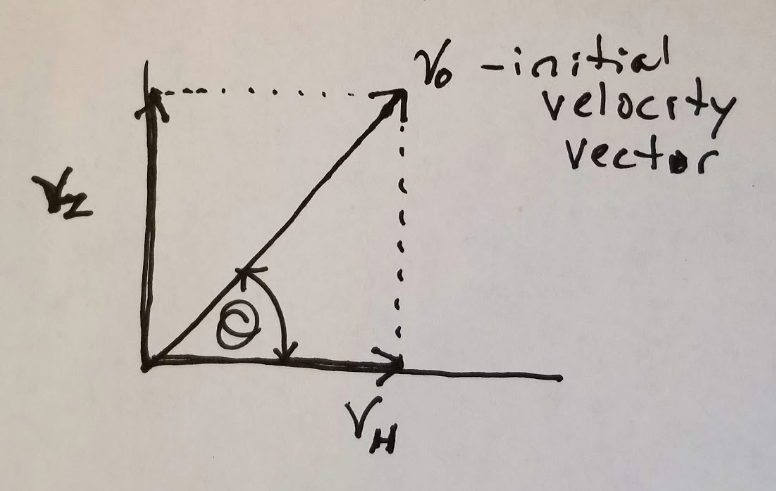 V₀ - initial
velocity
vector
V_Z
Θ
V_H